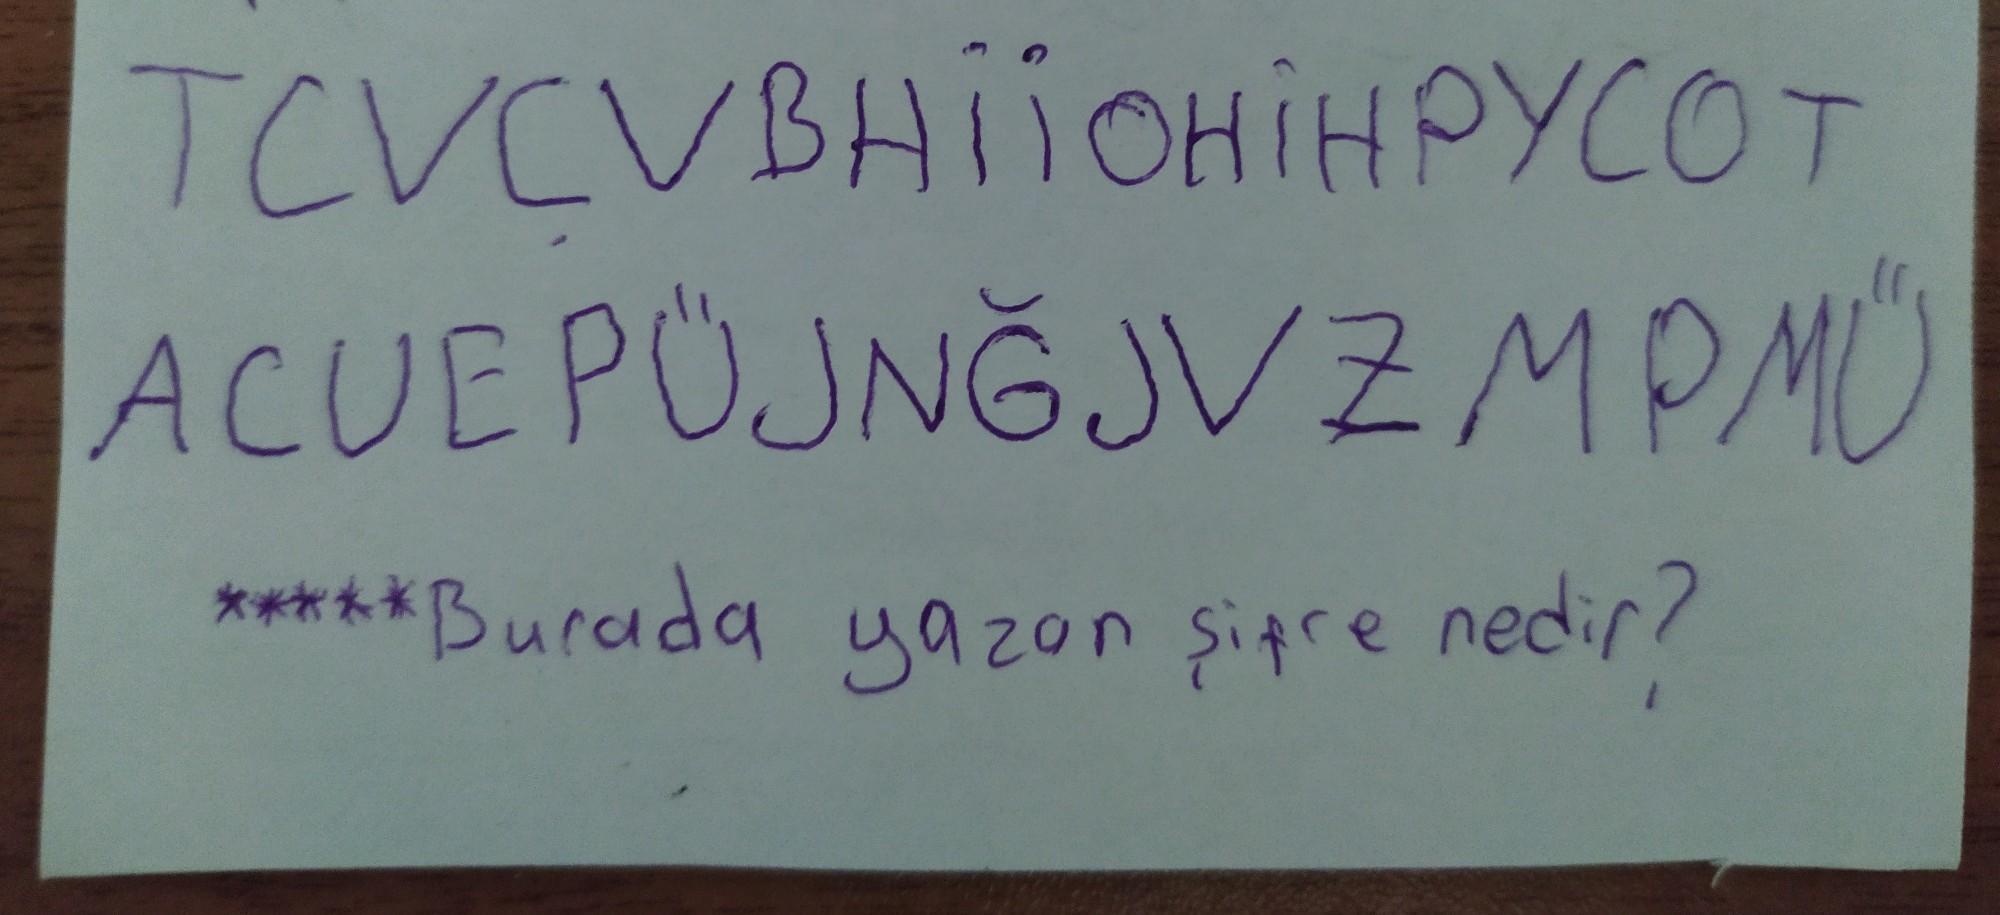 TCVÇVBHİİOHİHPYCOT
ACUEPÜJNĞJVZMPMÜ
*****Burada yazan şifre nedir?